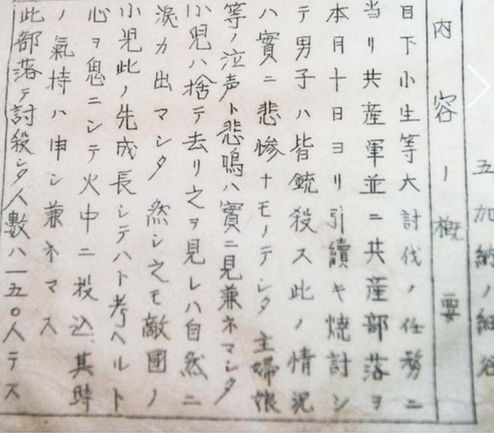 五加納ノ細谷
内容ノ概要
目下小生等大討伐ノ任務ニ
当リ共産軍並ニ共産部落ヲ
本月十日ヨリ引續キ焼討シ
テ男子ハ皆銃殺ス此ノ情況
ハ實ニ悲惨ナモノテシタ主婦娘
等ノ泣声ト悲鳴ハ實ニ見兼ネマシタ
小児ハ捨テ去リ之ヲ見レハ自然ニ
涙カ出マシタ然シ之モ敵國ノ
小児此ノ先成長シテハト考ヘルト
心ヲ鬼ニシテ火中ニ投込其時
ノ氣持ハ申シ兼ネマス
此部落テ討殺シタ人數ハ一五〇人テス